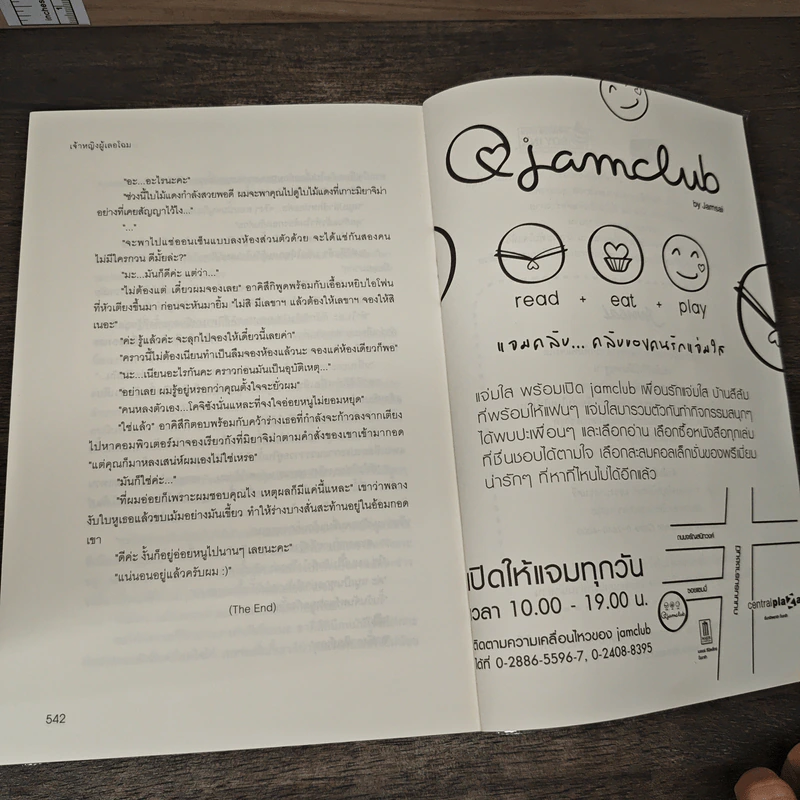 inches
เจ้าหญิงผู้เลอโฉม
"อะ...อะไรนะคะ"
"ช่วงนี้ใบไม้แดงกำลังสวยพอดี ผมจะพาคุณไปดูใบไม้แดงที่เกาะมิยาจิม่า
อย่างที่เคยสัญญาไว้ไง..."
"..."
"จะพาไปแช่ออนเซ็นแบบลงห้องส่วนตัวด้วย จะได้แช่กันสองคน
ไม่มีใครกวน ดีมั้ยล่ะ?"
"มะ...มันก็ดีค่ะ แต่ว่า..."
"ไม่ต้องแต่ เดี๋ยวผมจองเลย" อาคิสึกิพูดพร้อมกับเอื้อมหยิบไอโฟน
ที่หัวเตียงขึ้นมา ก่อนจะหันมายิ้ม "ไม่สิ มีเลขาฯ แล้วต้องให้เลขาฯ จองให้สิ
เนอะ"
"ค่ะ รู้แล้วค่ะ จะลุกไปจองให้เดี๋ยวนี้เลยค่า"
"คราวนี้ไม่ต้องเนียนทำเป็นลืมจองห้องแล้วนะ จองแค่ห้องเดียวก็พอ"
"นะ...เนียนอะไรกันคะ คราวก่อนมันเป็นอุบัติเหตุ..."
"อย่าเลย ผมรู้อยู่หรอกว่าคุณตั้งใจจะยั่วผม"
"คนหลงตัวเอง...โคจิซังนั่นแหละที่จงใจอ่อยหนูไม่ยอมหยุด"
"ใช่แล้ว" อาคิสึกิตอบพร้อมกับคว้าร่างเธอที่กำลังจะก้าวลงจากเตียง
ไปหาคอมพิวเตอร์มาจองเรียวกังที่มิยาจิม่าตามคำสั่งของเขาเข้ามากอด
"แต่คุณก็มาหลงเสน่ห์ผมเองไม่ใช่เหรอ"
"มันก็ใช่ค่ะ..."
"ที่ผมอ่อยก็เพราะผมชอบคุณไง เหตุผลก็มีแค่นี้แหละ" เขาว่าพลาง
งับใบหูเธอแล้วขบเม้มอย่างมันเขี้ยว ทำให้ร่างบางสั่นสะท้านอยู่ในอ้อมกอด
เขา
"ดีค่ะ งั้นก็อยู่อ่อยหนูไปนานๆ เลยนะคะ"
"แน่นอนอยู่แล้วครับผม :)"
(The End)
542
jamclub
by Jamsai
read + eat + play
แจมคลับ... คลับของคนรักแจ่มใส
แจ่มใส พร้อมเปิด jamclub เพื่อนรักแจ่มใส บ้านสีส้ม
ที่พร้อมให้แฟนๆ แจ่มใสมารวมตัวกันทำกิจกรรมสนุกๆ
ได้พบปะเพื่อนๆ และเลือกอ่าน เลือกซื้อหนังสือทุกเล่ม
ที่ชื่นชอบได้ตามใจ เลือกสะสมคอลเล็กชั่นของพรีเมี่ยม
น่ารักๆ ที่หาที่ไหนไม่ได้อีกแล้ว
เปิดให้แจมทุกวัน
เวลา 10.00 - 19.00 น.
ติดตามความเคลื่อนไหวของ jamclub
ได้ที่ 0-2886-5596-7, 0-2408-8395
ถนนจรัญสนิทวงศ์
ถนนบรมราชชนนี
jamclub
centralplaza